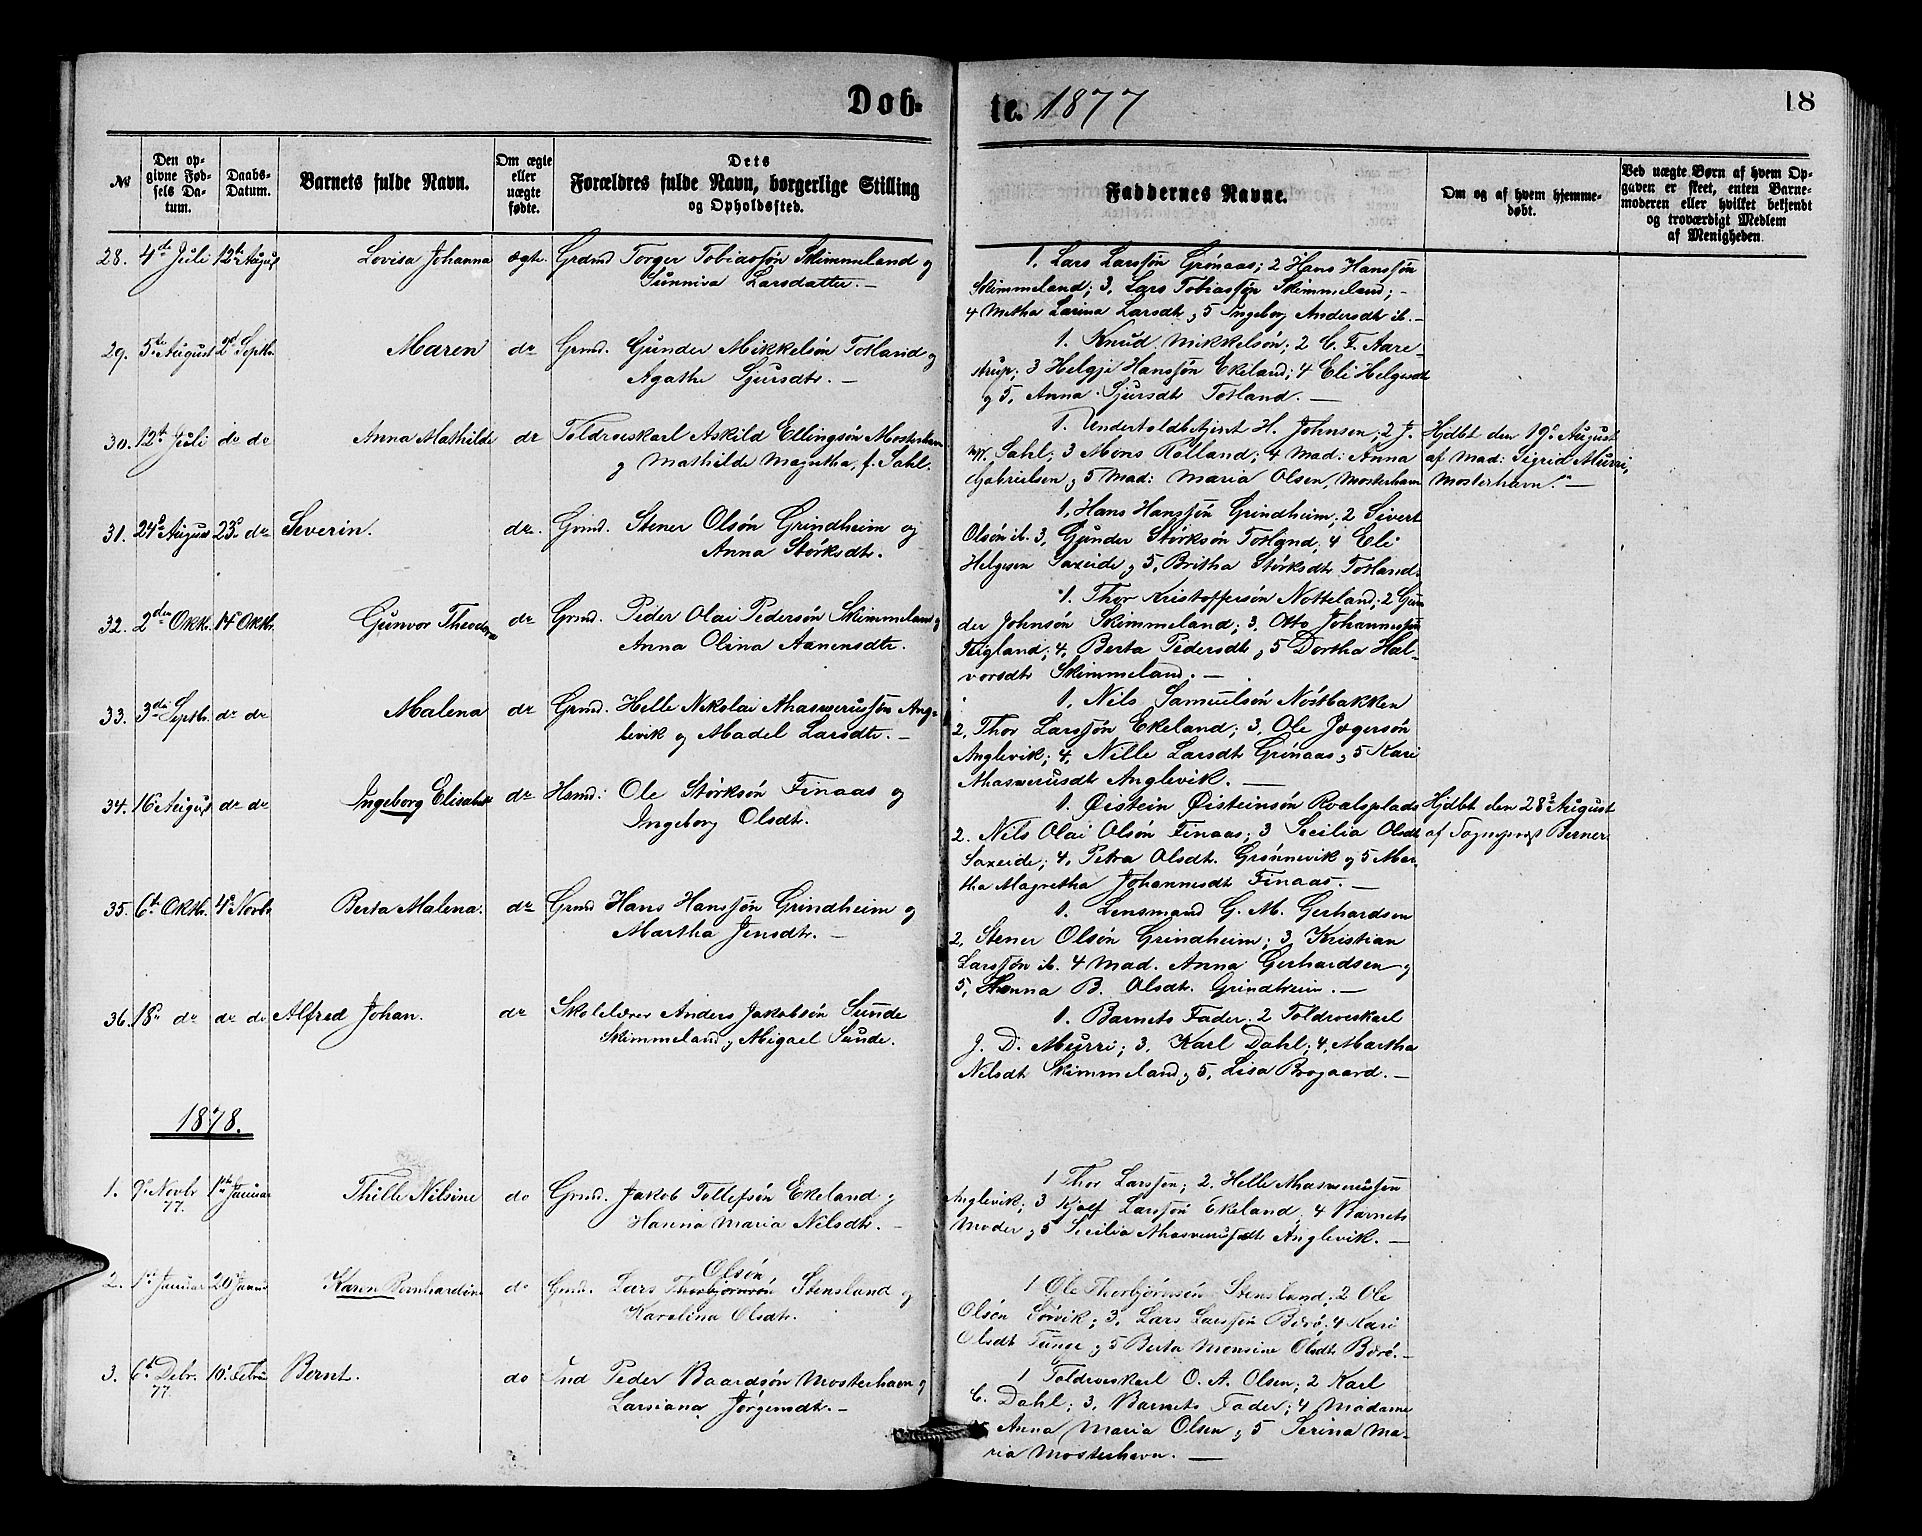 Døb-
te. 1877
18
№
Den op-
givne Fød-
sels Da-
tum.
Daabs-
Datum.
Barnets fulde Navn.
Om ægte
eller
uægte
fødte.
Dets
Forældres fulde Navn, borgerlige Stilling
og Opholdssted.
Faddernes Navne.
Om og af hvem hjemme-
døbt.
Ved uægte Børn af hvem Op-
gaven er skeet, enten Barne-
moderen eller hvilket bekjendt
og troværdigt Medlem
af Menigheden.
28. 4de Juli 12te August Lovisa Johanna ægte Grdmd Torger Tobiassøn Skimmeland og
Sunniva Larsdatter. —
1, Lars Larssøn Grönaas; 2 Hans Hanssøn
Skimmeland; 3, Lars Tobiassøn Skimmeland; -
4 Metha Larina Larsdt, og 5 Ingeborg Andersdt ib. —
29. 5te August 2d Septbr. Maren do Grmd. Gunder Mikkelsön Totland og
Agathe Sjursdtr. —
1. Knud Mikkelsön; 2 C. F. Aare-
strup; 3 Helgje Hanssön Ekeland; 4 Eli Helgesdt
og 5, Anna Sjursdt Totland. —
30. 12te Juli do do Anna Mathilde do Toldroeskarl Askild Ellingsön Mosterhavn
og Mathilde Magretha, f. Dahl.
1. Undertoldbetjent H. Johnsen; 2 J.
W. Dahl; 3 Mons Rölland; 4 Mad: Anna
Gabrielsen og 5 Mad: Maria Olsen, Mosterhavn
Hjdbt den 19de August
af Mad: Sigrid Murri,
Mosterhavn. —
31. 24de August 23de do Severin. do. Grmd. Stener Olsön Grindheim og
Anna Störksdtr.
1, Hans Hanssön Grindheim; 2 Sivert
Olsön ib. 3, Gunder Störksön Totland; 4 Eli
Helgesen Saxeide og 5, Britha Störksdtr Totland.
32. 2den Oktbr. 14 Oktbr. Gunvor Theodora do Grmd. Peder Olai Pedersön Skimmeland og
Anna Olina Aanensdtr.
1. Thor Kristoffersön Notteland; 2 Gun
der Johnsön Skimmeland; 3, Otto Johannessön
Teigland; 4, Berta Pedersdt og 5 Dortha Hal-
vorsdtr Skimmeland. —
33. 3die Septbr. do do Malena do Grmd. Helle Nikolai Ahasverussön Ang-
levik og Madel Larsdtr. —
1, Nils Samuelsön Nöstbakken
2, Thor Larssön Ekeland; 3, Ole Jogersön
Anglevik; 4, Nille Larsdt Grönaas, og 5 Kari
Ahasverusdt Anglevik. —
34. 16 August do do Ingeborg Elisabet do Hsmd: Ole Störksön Finaas og
Ingeborg Olsdtr.
1. Øistein Øisteinsön Roalsplads
2. Nils Olai Olsön Finaas; 3 Secilia Olsdt
Saxeide; 4, Petra Olsdt. Grönnevik og 5 Mar-
tha Magretha Johannesdt Finaas. —
Hjdbt den 28de August
af Sogneprest Berner
35. 6te Oktbr. 4de Novbr Berta Malena. do Grmd Hans Hanssön Grindheim og
Martha Jensdtr. —
1. Lensmand G. M. Gerhardsen
2, Stener Olsön Grindheim; 3, Kristian
Larssön ib. 4 Mad. Anna Gerhardsen og
5, Hanna B. Olsdt. Grindheim. —
36. 18de do do do Alfred Johan. do Skolelærer Anders Jakobsön Sunde
Skimmeland, og Abigael Sunde.
1. Barnets Fader; 2 Toldroeskarl
J. D. Murri; 3, Karl Dahl; 4, Martha
Nilsdt Skimmeland, og 5, Lisa Brogaard. —
1878.
1. 9de Novbr 77. 1ste Januar Thille Nilsine do Grmd. Jakob Tollefsön Ekeland og
Hanna Maria Nilsdtr. —
1 Thor Larssen; 2. Helle Ahasverussen
Anglevik; 3 Larssön Ekeland; 4 Barnets
Moder og 5 Secilia Ahasverusdtr Anglevik. —
2. 1ste Januar 20 Januar Karen Bernhardine do Grmd. Lars Thorbjörnsön Olsön Stensland og
Karolina Olsdtr.
1 Ole Thorbjörnsön Stensland; 2 Ole
Olsön Sörvik; 3, Lars Larssön Börö; 4 Kari
Olsdt Tunge og 5 Berta Monsine Olsdt Börö. —
3. 6te Debr. 77 10de Febru Bernt. do Peder Baardsön Mosterhavn og
Larsiana Jörgensdtr. —
1 Toldroeskarl O. A. Olsen; 2 Karl
C. Dahl; 3, Barnets Fader; 4 Madame
Anna Maria Olsen og 5 Serina Ma-
ria Mosterhavn. —